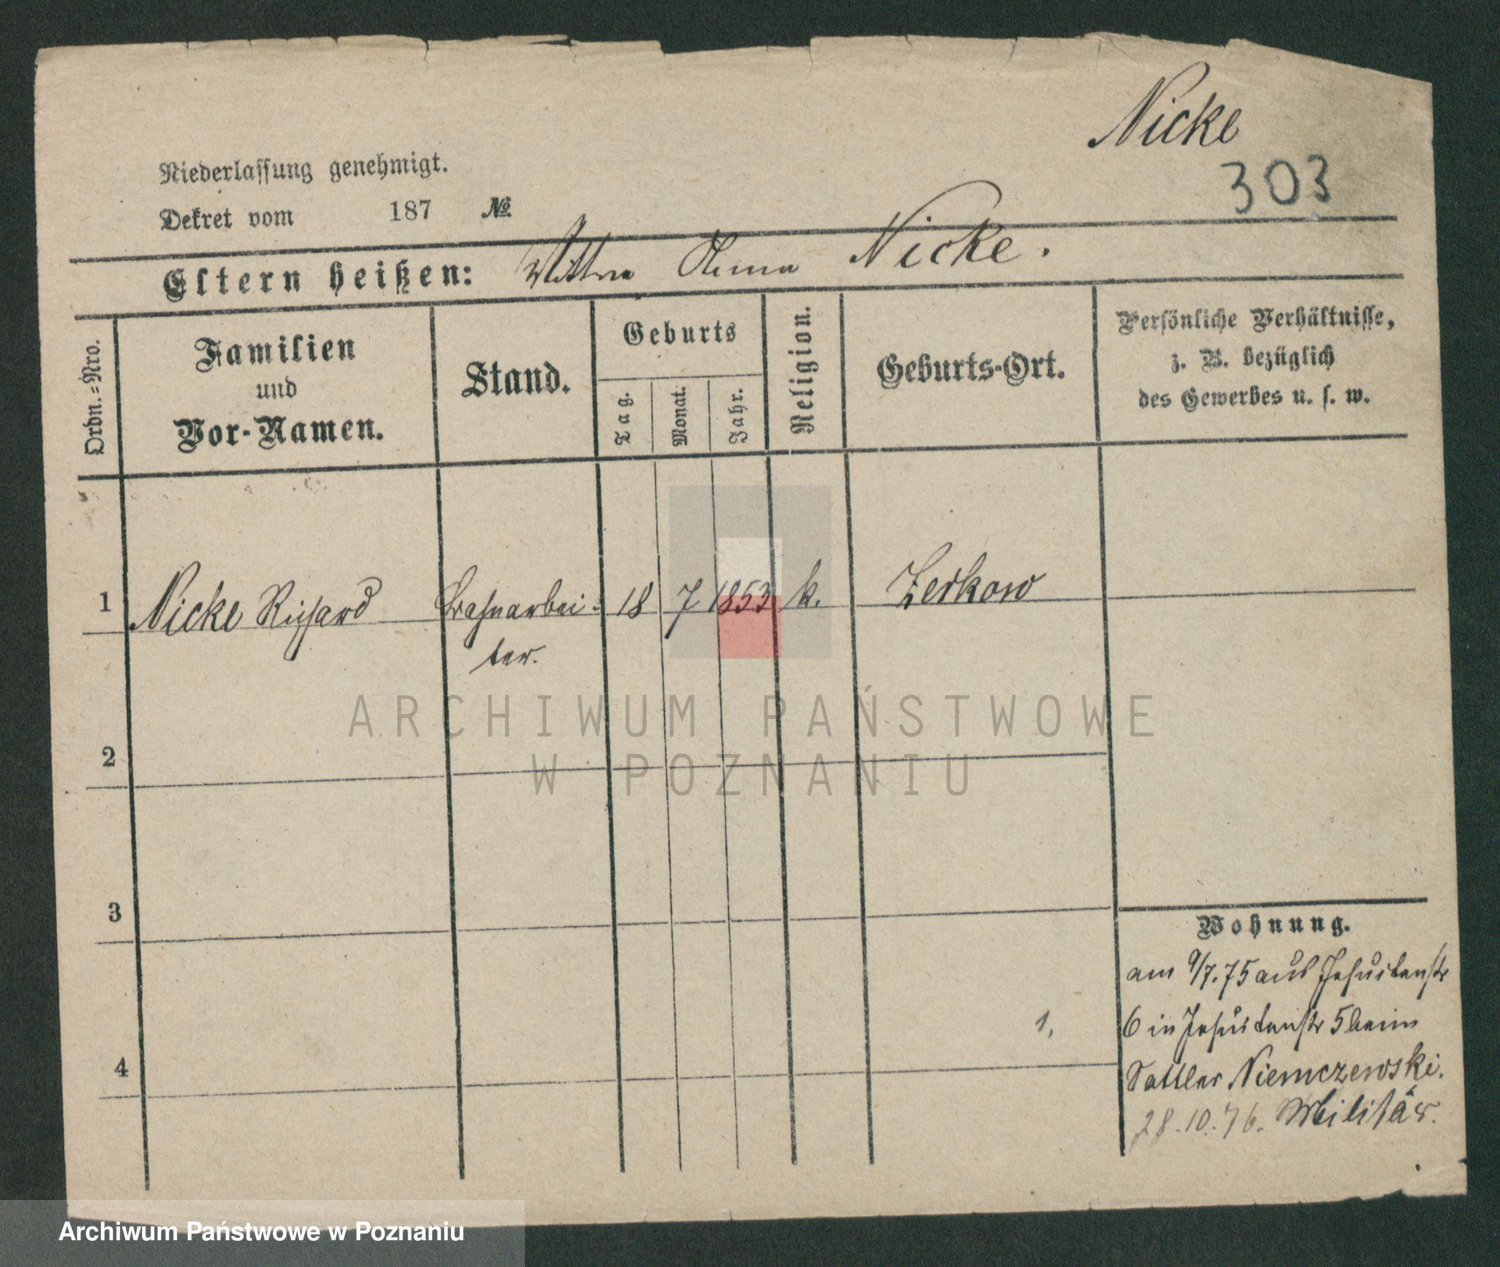 Nicke
303
Niederlassung genehmigt.
Dekret vom 187 №
Eltern heißen: Nicke.
Ordn.-Nro.
Familien
und
Vor-Namen.
Stand.
Geburts
Tag.
Monat.
Jahr.
Religion.
Geburts-Ort.
Persönliche Verhältnisse,
z. B. bezüglich
des Gewerbes u. s. w.
1 Nicke Richard Bahnarbei- 18 7 1853 k. Zerkow
ter.
ARCHIWUM PAŃSTWOWE
W POZNANIU
2
3
4
Wohnung.
am 9/7.75 aus Jesuitenstr
6 in Jesuitenstr 5 beim
1,
Sattler Niemczewski.
28.10.76. Militär.
Archiwum Państwowe w Poznaniu